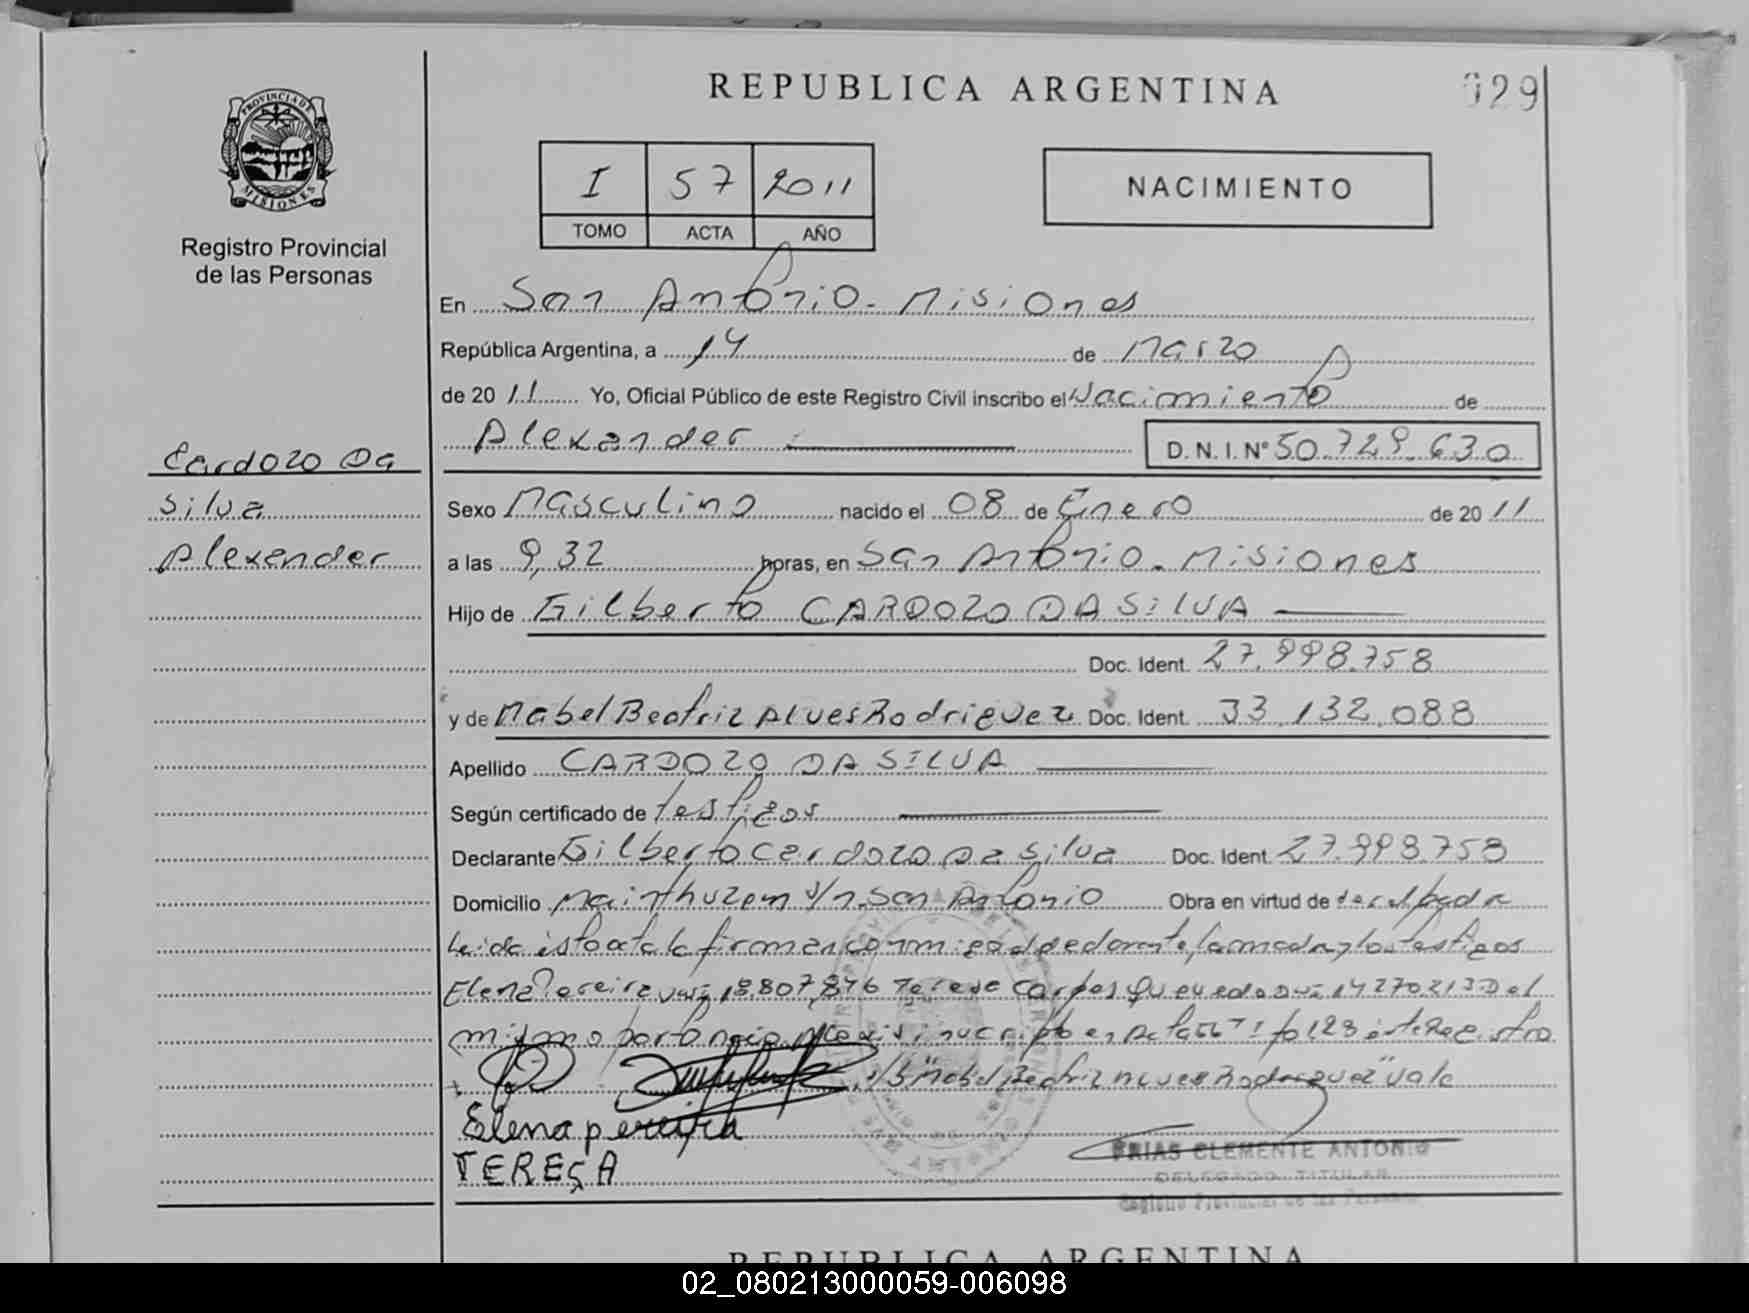 REPUBLICA ARGENTINA
029
PROVINCIA DE
MISIONES
Registro Provincial
de las Personas
I 57 2011
TOMO ACTA AÑO
NACIMIENTO
En San Antonio - Misiones
República Argentina, a 14 de Marzo
de 20 11 Yo, Oficial Público de este Registro Civil inscribo el Nacimiento de
Alexander D. N. I. Nº 50.729.630
Cardozo Da
Silva
Alexander
Sexo Masculino nacido el 08 de Enero de 20 11
a las 9,32 horas, en San Antonio - Misiones
Hijo de Gilberto CARDOZO DA SILVA
Doc. Ident. 27.998.758
y de Mabel Beatriz Alves Rodriguez Doc. Ident. 33.132.088
Apellido CARDOZO DA SILVA
Según certificado de testigos
Declarante Gilberto Cardozo Da Silva Doc. Ident. 27.998.758
Domicilio s/n. San Antonio Obra en virtud de
Leida esta acta la firman conmigo el la madre y los testigos
Elena Pereira 18.807.846 Teresa
mismo inscripto en Acta este Registro
Mabel Beatriz Alves Rodriguez" Vale
Elena pereira
TERESA
FRIAS CLEMENTE ANTONIO
DELEGADO TITULAR
Registro Provincial de las Personas
REPUBLICA ARGENTINA
02_080213000059-006098